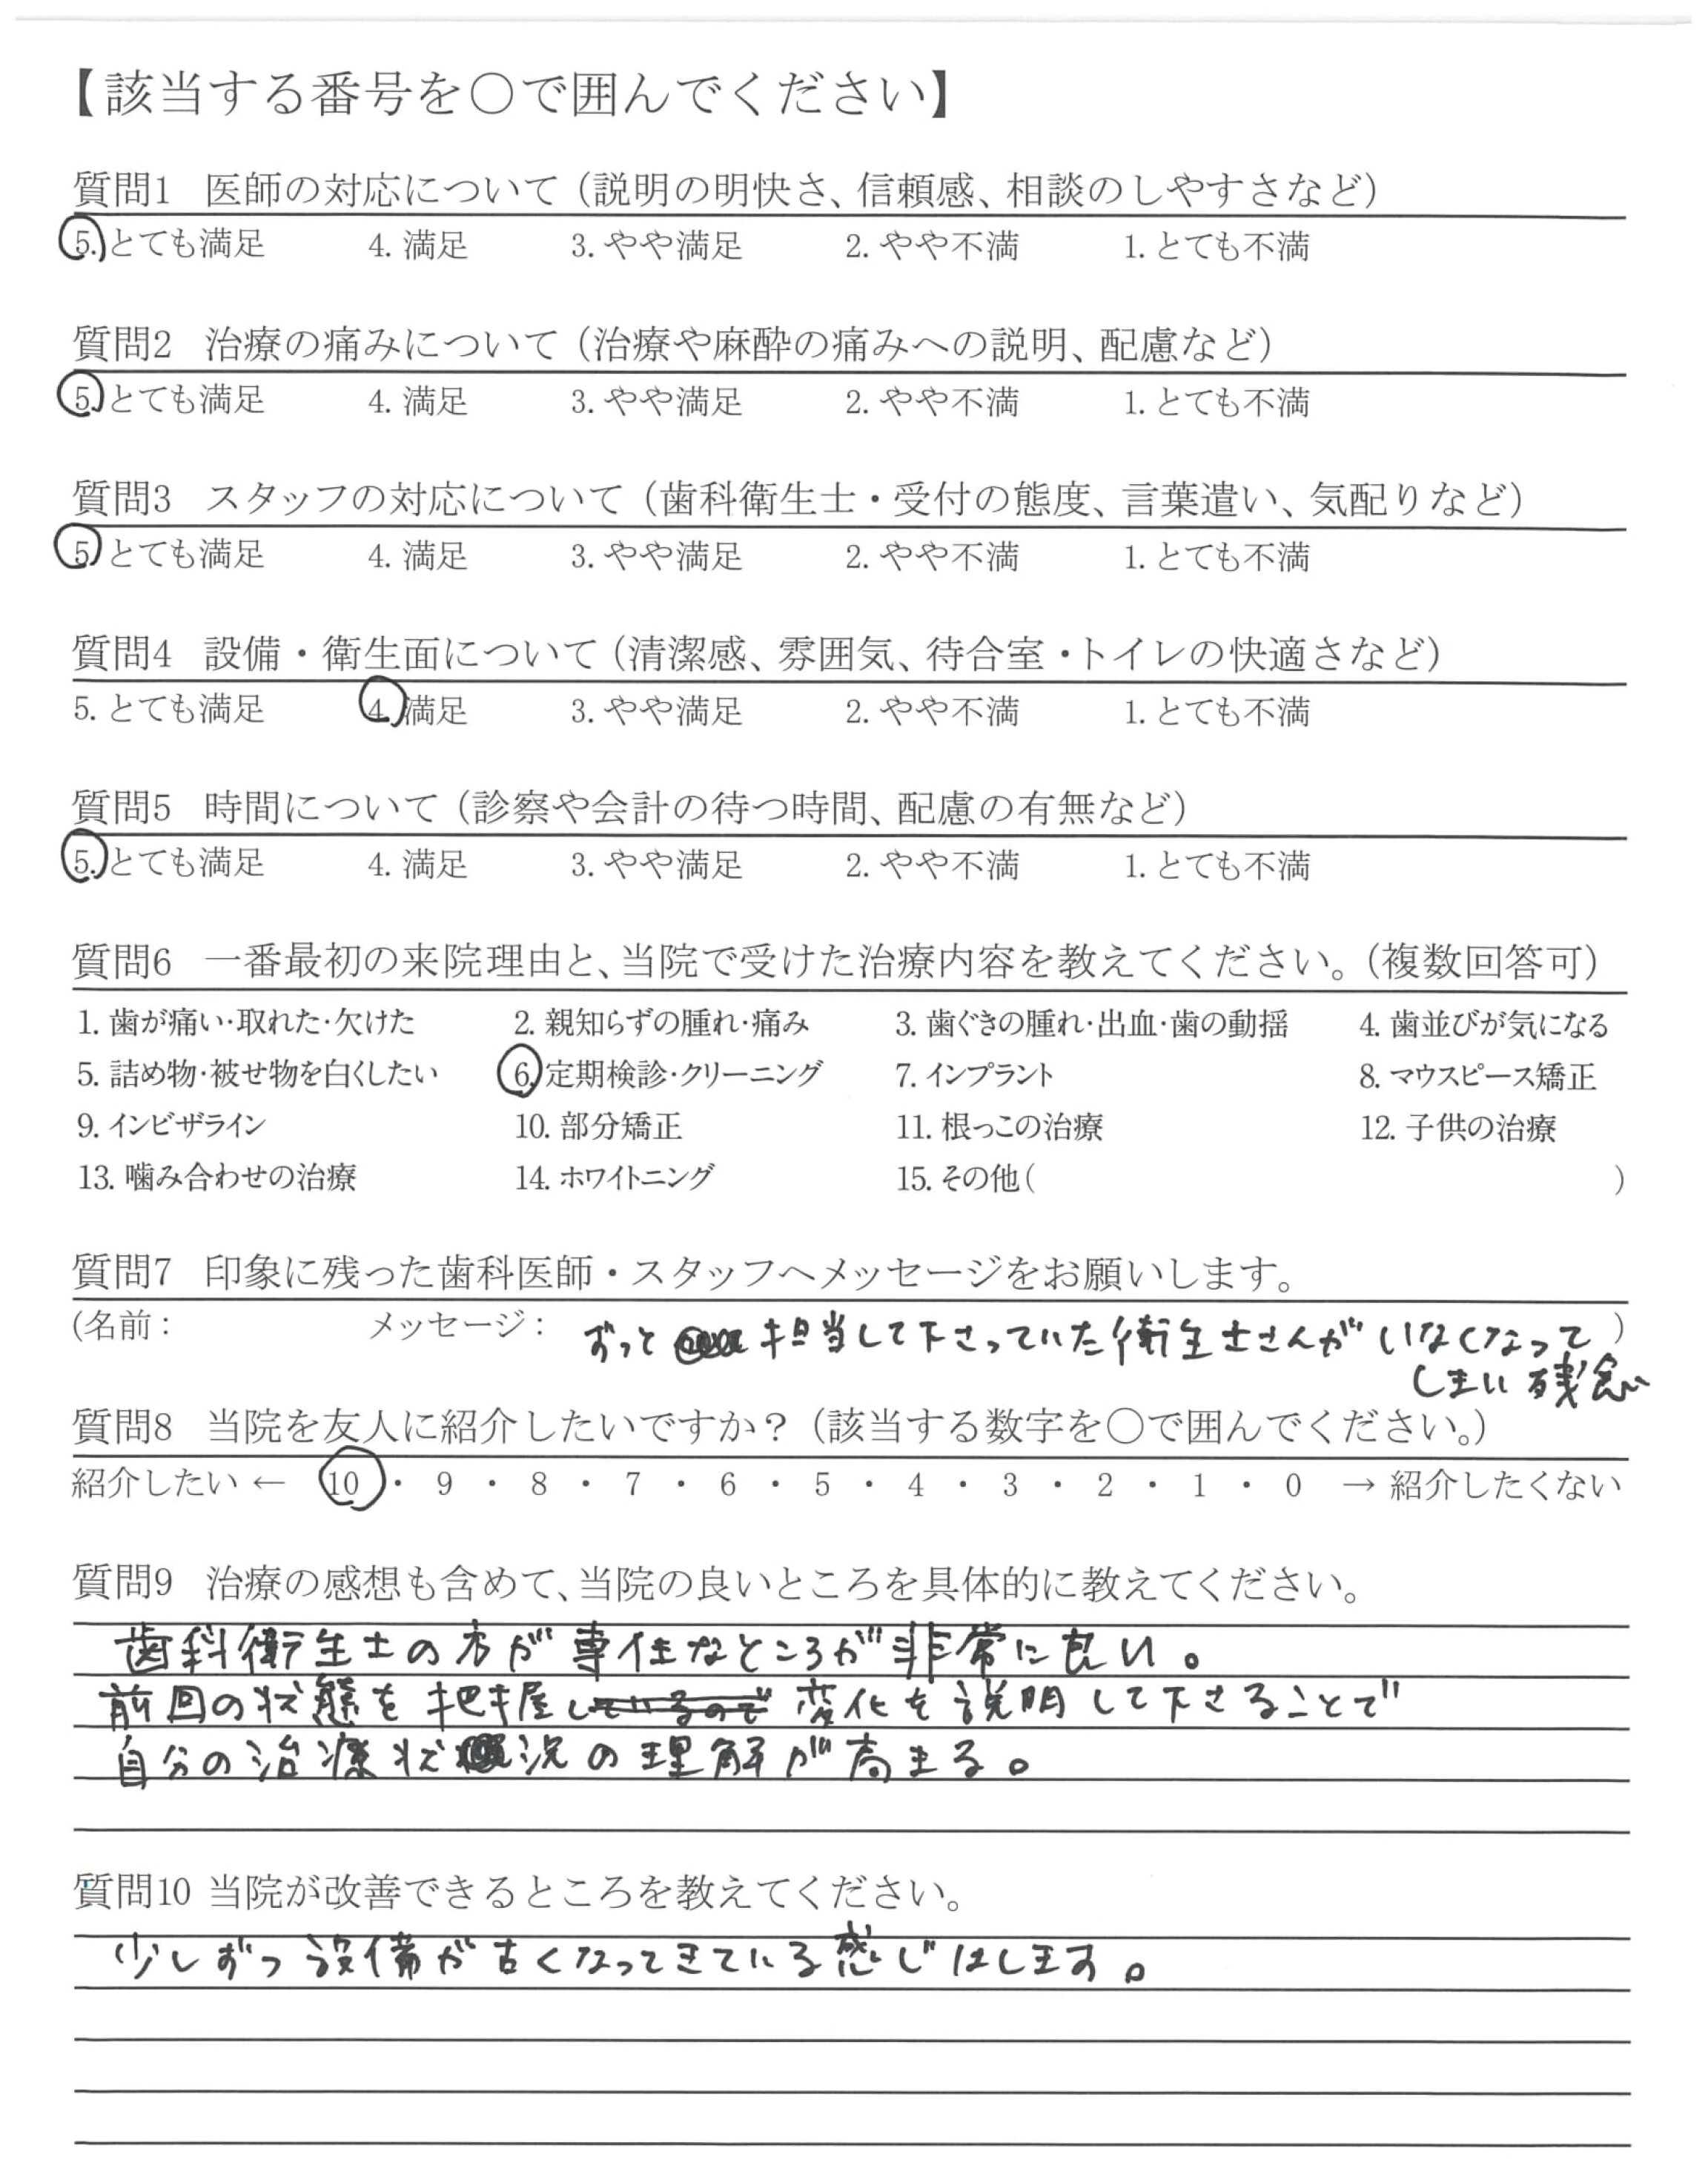 【該当する番号を〇で囲んでください】
質問1 医師の対応について（説明の明快さ、信頼感、相談のしやすさなど）
5. とても満足 4. 満足 3. やや満足 2. やや不満 1. とても不満
質問2 治療の痛みについて（治療や麻酔の痛みへの説明、配慮など）
5. とても満足 4. 満足 3. やや満足 2. やや不満 1. とても不満
質問3 スタッフの対応について（歯科衛生士・受付の態度、言葉遣い、気配りなど）
5. とても満足 4. 満足 3. やや満足 2. やや不満 1. とても不満
質問4 設備・衛生面について（清潔感、雰囲気、待合室・トイレの快適さなど）
5. とても満足 4. 満足 3. やや満足 2. やや不満 1. とても不満
質問5 時間について（診察や会計の待つ時間、配慮の有無など）
5. とても満足 4. 満足 3. やや満足 2. やや不満 1. とても不満
質問6 一番最初の来院理由と、当院で受けた治療内容を教えてください。（複数回答可）
1. 歯が痛い・取れた・欠けた 2. 親知らずの腫れ・痛み 3. 歯ぐきの腫れ・出血・歯の動揺 4. 歯並びが気になる
5. 詰め物・被せ物を白くしたい 6. 定期検診・クリーニング 7. インプラント 8. マウスピース矯正
9. インビザライン 10. 部分矯正 11. 根っこの治療 12. 子供の治療
13. 噛み合わせの治療 14. ホワイトニング 15. その他（ ）
質問7 印象に残った歯科医師・スタッフへメッセージをお願いします。
（名前： メッセージ： ずっと 担当して下さっていた衛生士さんが いなくなって ）
しまい 残念
質問8 当院を友人に紹介したいですか？（該当する数字を〇で囲んでください。）
紹介したい ← 10 ・ 9 ・ 8 ・ 7 ・ 6 ・ 5 ・ 4 ・ 3 ・ 2 ・ 1 ・ 0 → 紹介したくない
質問9 治療の感想も含めて、当院の良いところを具体的に教えてください。
歯科衛生士の方が 専任なところが 非常に良い。
前回の状態を 把握しているので 変化を説明して下さることで
自分の治療状況の理解が高まる。
質問10 当院が改善できるところを教えてください。
少しずつ 設備が古くなってきている感じはします。